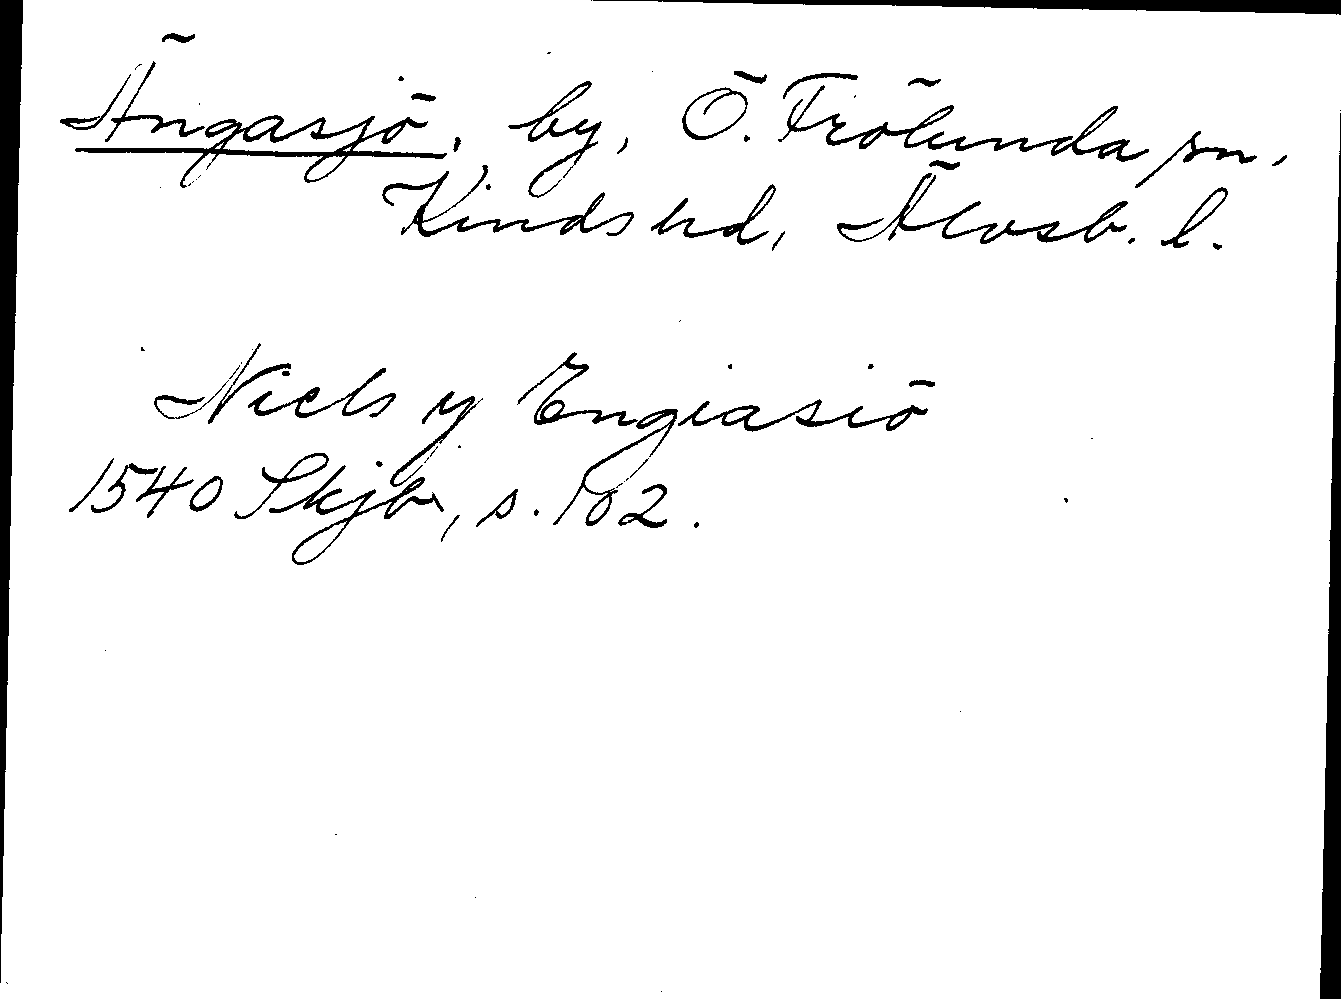 Ängasjö, by, Ö. Frölunda sn,
Kinds hd, Älvsb. l.
Niels y Engiasiö
1540 Skjb, s. 102.